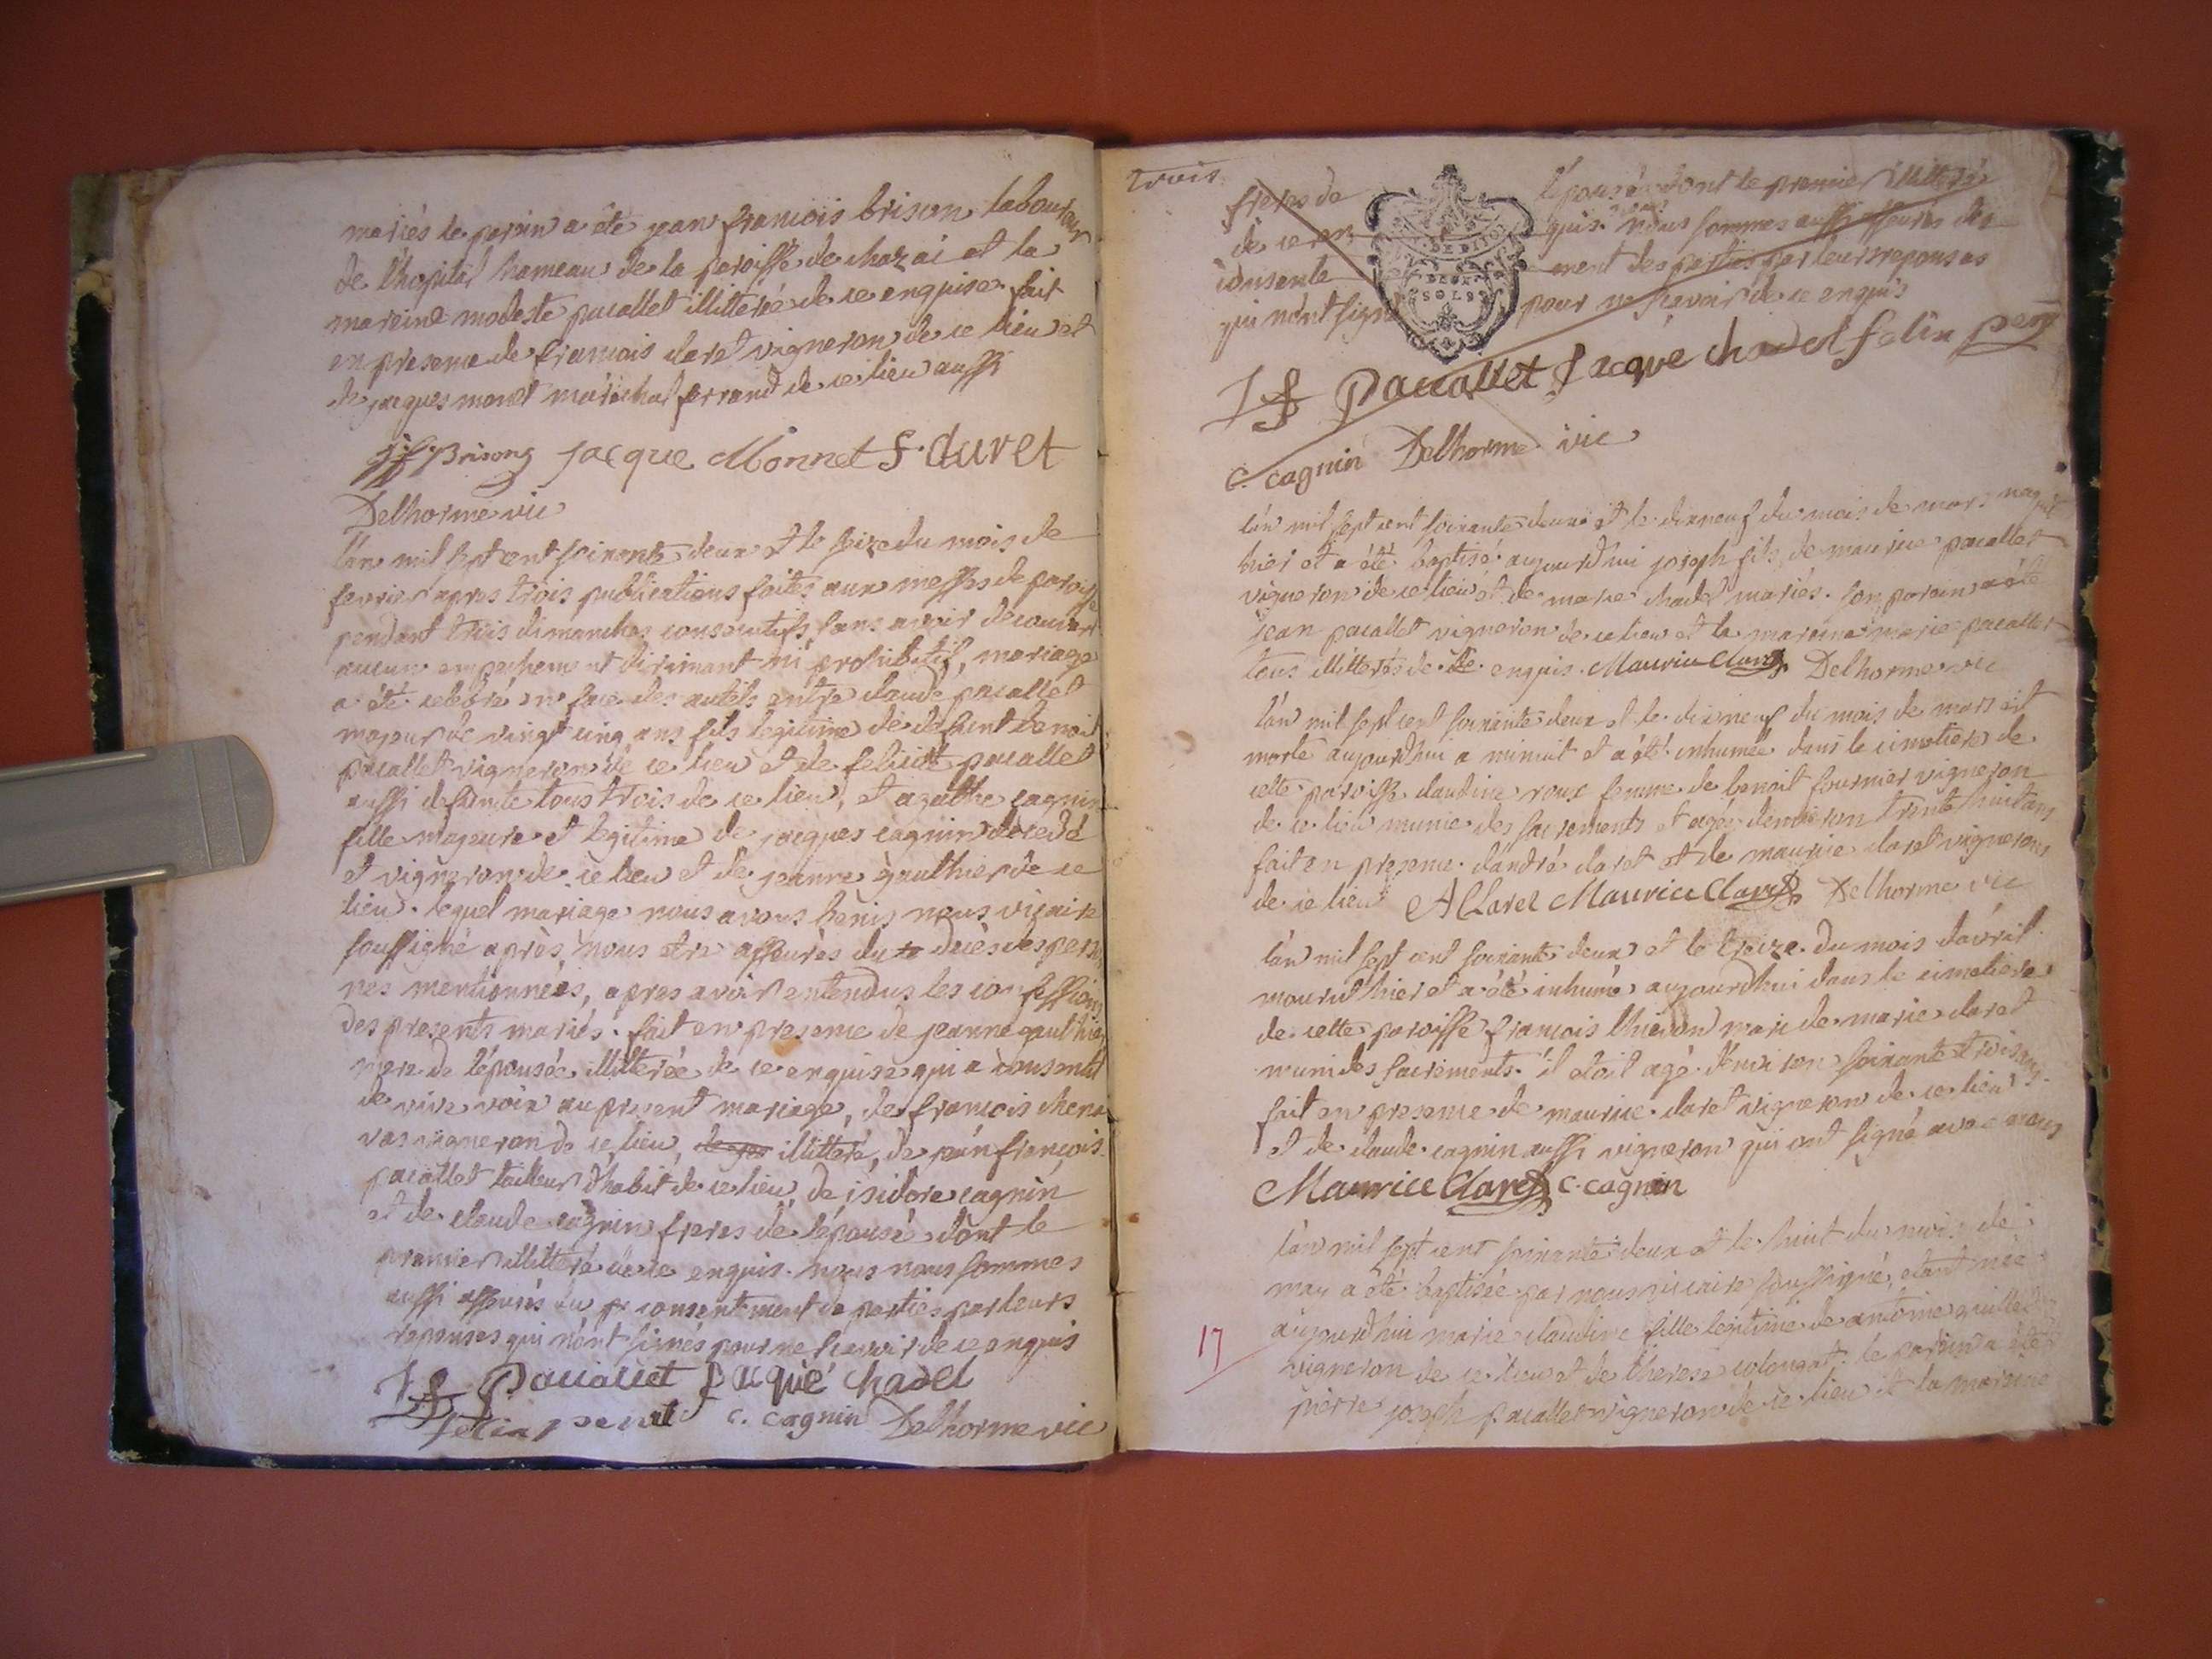 mariés le parein a éte jean francois brison laboureur
de l'hopital hameau de la paroisse de chazai et la
mareine modeste pacallet illiterée de ce enquise. fait
en presence de francois claret vigneron de ce lieu et
de jacques monet maréchal ferrand de ce lieu aussi
Brison jacque Monnet f. duret
Delhorme vic
l'an mil sept cent soixante deux et le seize du mois de
fevrier apres trois publications faites aux messes de paroisse
pendant trois dimanches consecutifs sans avoir decouvert
aucun empechement dirimant ni prohibitif, mariage
a été celebré en face des autels entre claude pacallet
majeur de vingt cinq ans fils legitime de defunt benoit
pacallet vigneron de ce lieu et de felicité pacallet
aussi defunte tous trois de ce lieu, et agathe cagnin
fille majeure et legitime de jacques cagnin decedé
et vigneron de ce lieu et de jeanne gaulthier de ce
lieu. lequel mariage nous avons benis nous vicaire
soussigné après nous etre assurés du decès des person
nes mentionnées, apres avoir entendus les confessions
des presents mariés. fait en presence de jeanne gaulthier
mere de l'épousée illiterée de ce enquise qui a consentit
de vive voix au present mariage, de francois chena
vas vigneron de ce lieu, illitteré, de jean francois
pacallet tailleur d'habit de ce lieu, de isidore cagnin
et de claude cagnin freres de l'épousée dont le
premier illitteré de ce enquis. nous nous sommes
aussi assurés du consentement de parties par leurs
reponses qui n'ont signés pour ne scavoir de ce enquis
J f Pacallet Jacque chadel
felix penet c. cagnin Delhorme vic
trois
freres de l'épousée dont le premier illitteré
de ce en quis. nous sommes aussi assurés du
consente ment des parties par leurs reponses
qui n'ont signé pour ne scavoir de ce enquis
J f Pacallet Jacque chadel felix pen
c. cagnin Delhorme vic
l'an mil sept cent soixante deux et le dixneuf du mois de mars naquit
hier et a été baptisé aujourd'hui joseph fils de maurice pacallet
vigneron de ce lieu et de marie chadel mariés. son parein a été
jean pacallet vigneron de ce lieu et la mareine marie pacallet
tous illitterés de ce enquis. Maurice Claret Delhorme vic
l'an mil sept cent soixante deux et le dixneuf du mois de mars est
morte aujourd'hui a minuit et a été inhumée dans le cimetiere de
cette paroisse claudine roux femme de benoit fournier vigneron
de ce lieu munie des sacrements et agée d'environ trente huit ans
fait en presence d'andré claret et de maurice claret vignerons
de ce lieu A Claret Maurice Claret Delhorme vic
l'an mil sept cent soixante deux et le treize du mois d'avril
mourut hier et a été inhumé aujourd'hui dans le cimetiere
de cette paroisse francois mari de marie claret
muni des sacrements. il etoit agé d'environ soixante trois ans.
fait en presence de maurice claret vigneron de ce lieu
et de claude cagnin aussi vigneron qui ont signé avec nous
Maurice Claret c. cagnin
l'an mil sept cent soixante deux et le huit du mois de
may a été baptisée par nous vicaire soussigné, etant née
aujourd'hui marie claudine fille legitime de antoine guillet
17
vigneron de ce lieu et de therese le parein a été
pierre joseph pacallet vigneron de ce lieu et la mareine